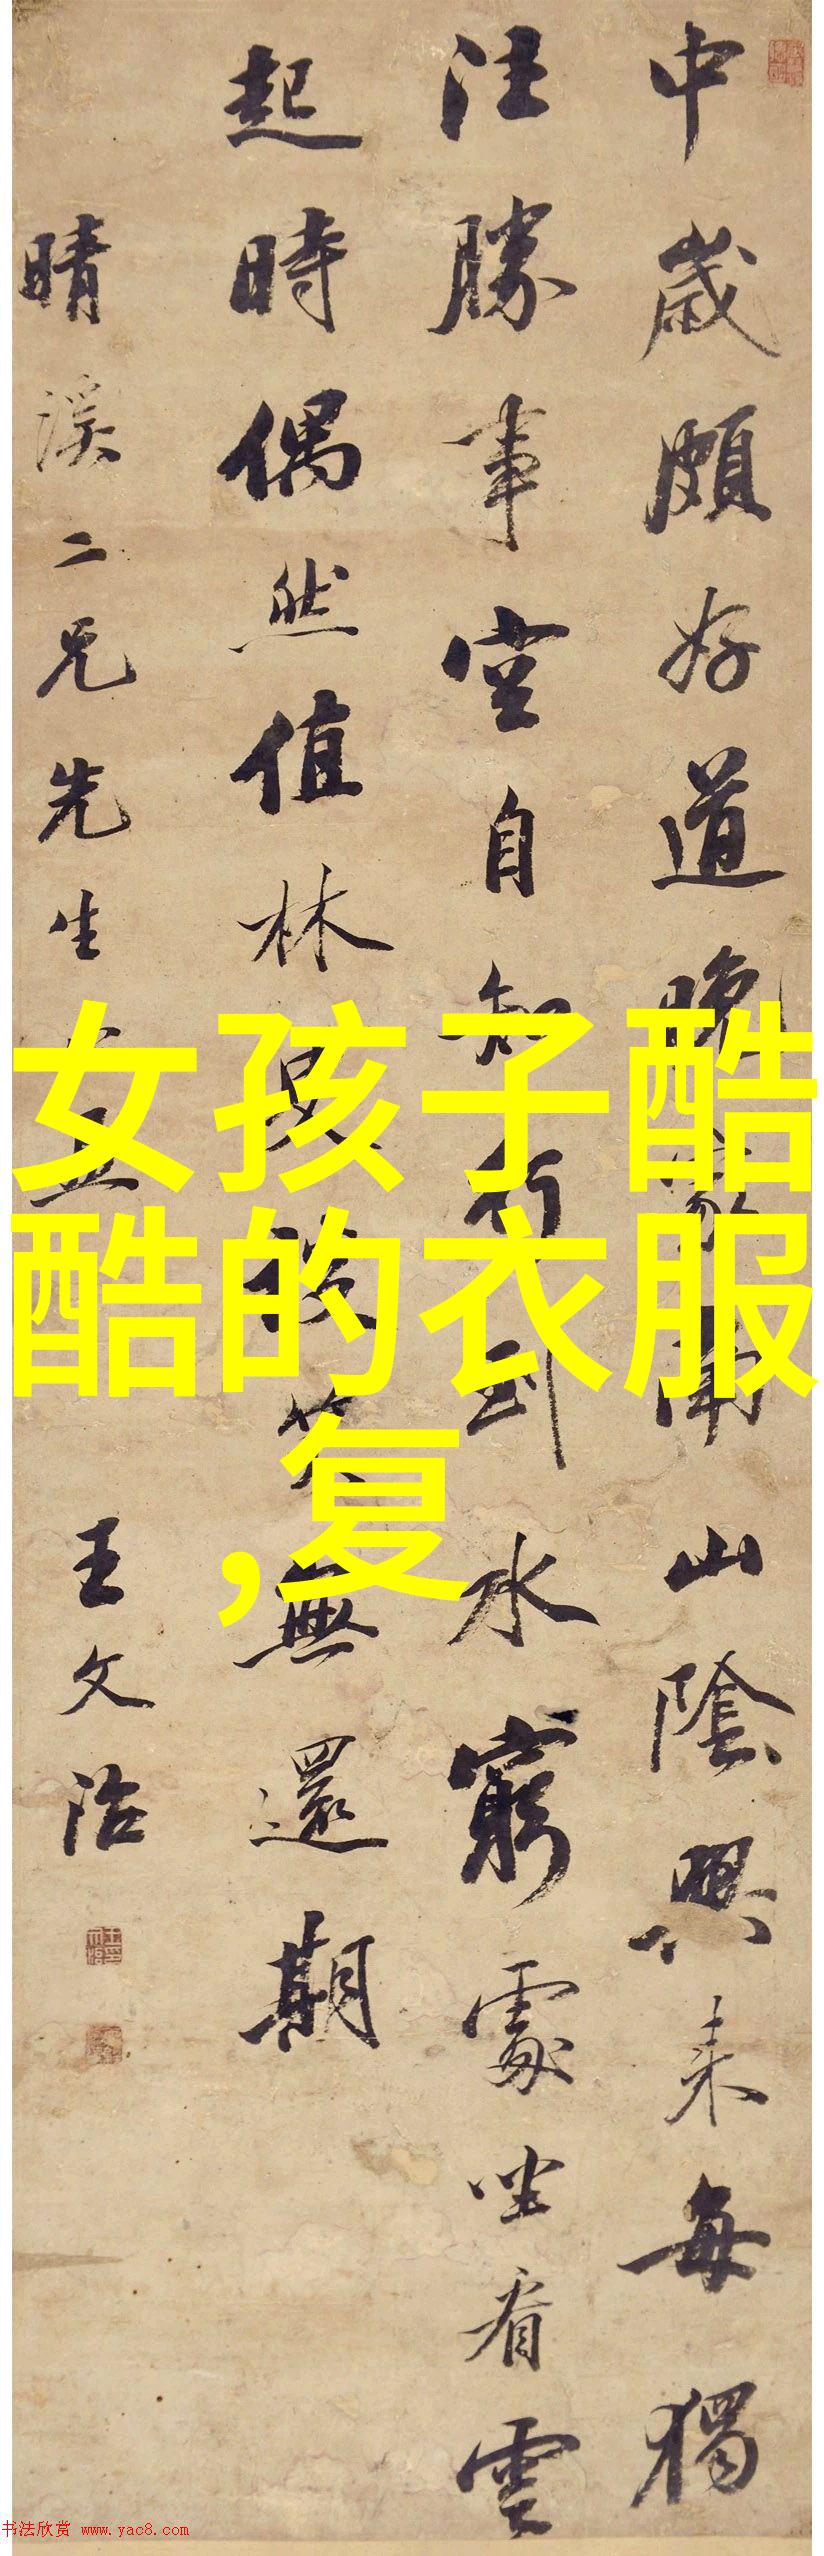 中歲頗好道晚家南山陰興来每獨
往勝事空自知行到水窮處坐看雲
起時偶然值林叟談笑無還期
晴溪二兄先生
王文治
女孩子酷
酷的衣服
,复
书法欣赏 www.yac8.com